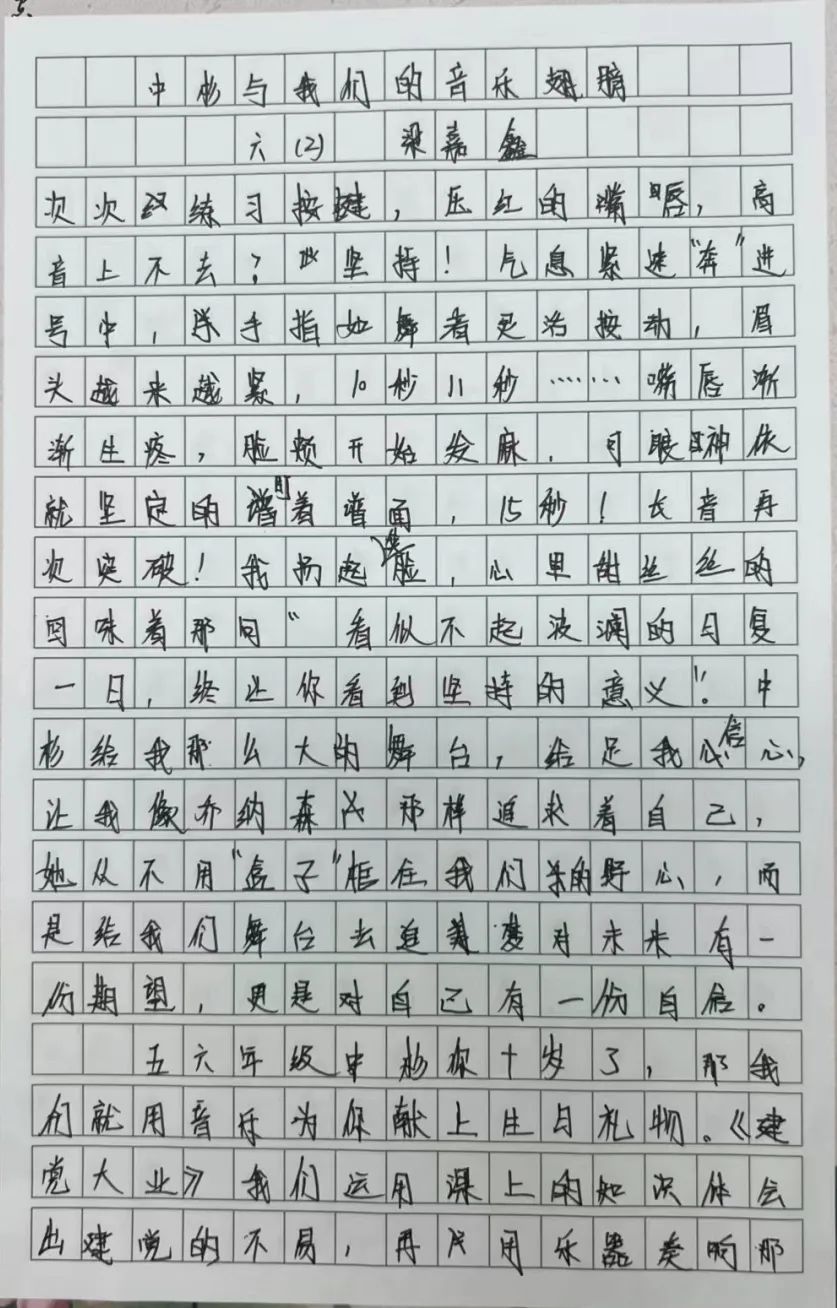 中杉与我们的音乐翅膀
六(2) 梁嘉鑫
次次练习按键，压红的嘴唇，高
音上不去？坚持！气息紧速“奔”进
号中，手指如舞者灵活按动，眉
头越来越紧，10秒11秒……嘴唇渐
渐生疼，脸颊开始发麻，可眼神依
就坚定的盯着谱面，15秒！长音再
次突破！我扬起笑脸，心里甜丝丝的
回味着那句“看似不起波澜的日复
一日，终让你看到坚持的意义”。中
杉给我那么大的舞台，给足我信心，
让我像乔纳森 那样追求着自己，
她从不用“盒子”框住我们的野心，而
是给我们舞台去追梦对未来有一
份期望，更是对自己有一份自信。
五六年级中杉你十岁了，那我
们就用音乐为你献上生日礼物。《建
党大业》我们运用课上的知识体会
出建党的不易，再用乐器奏响那